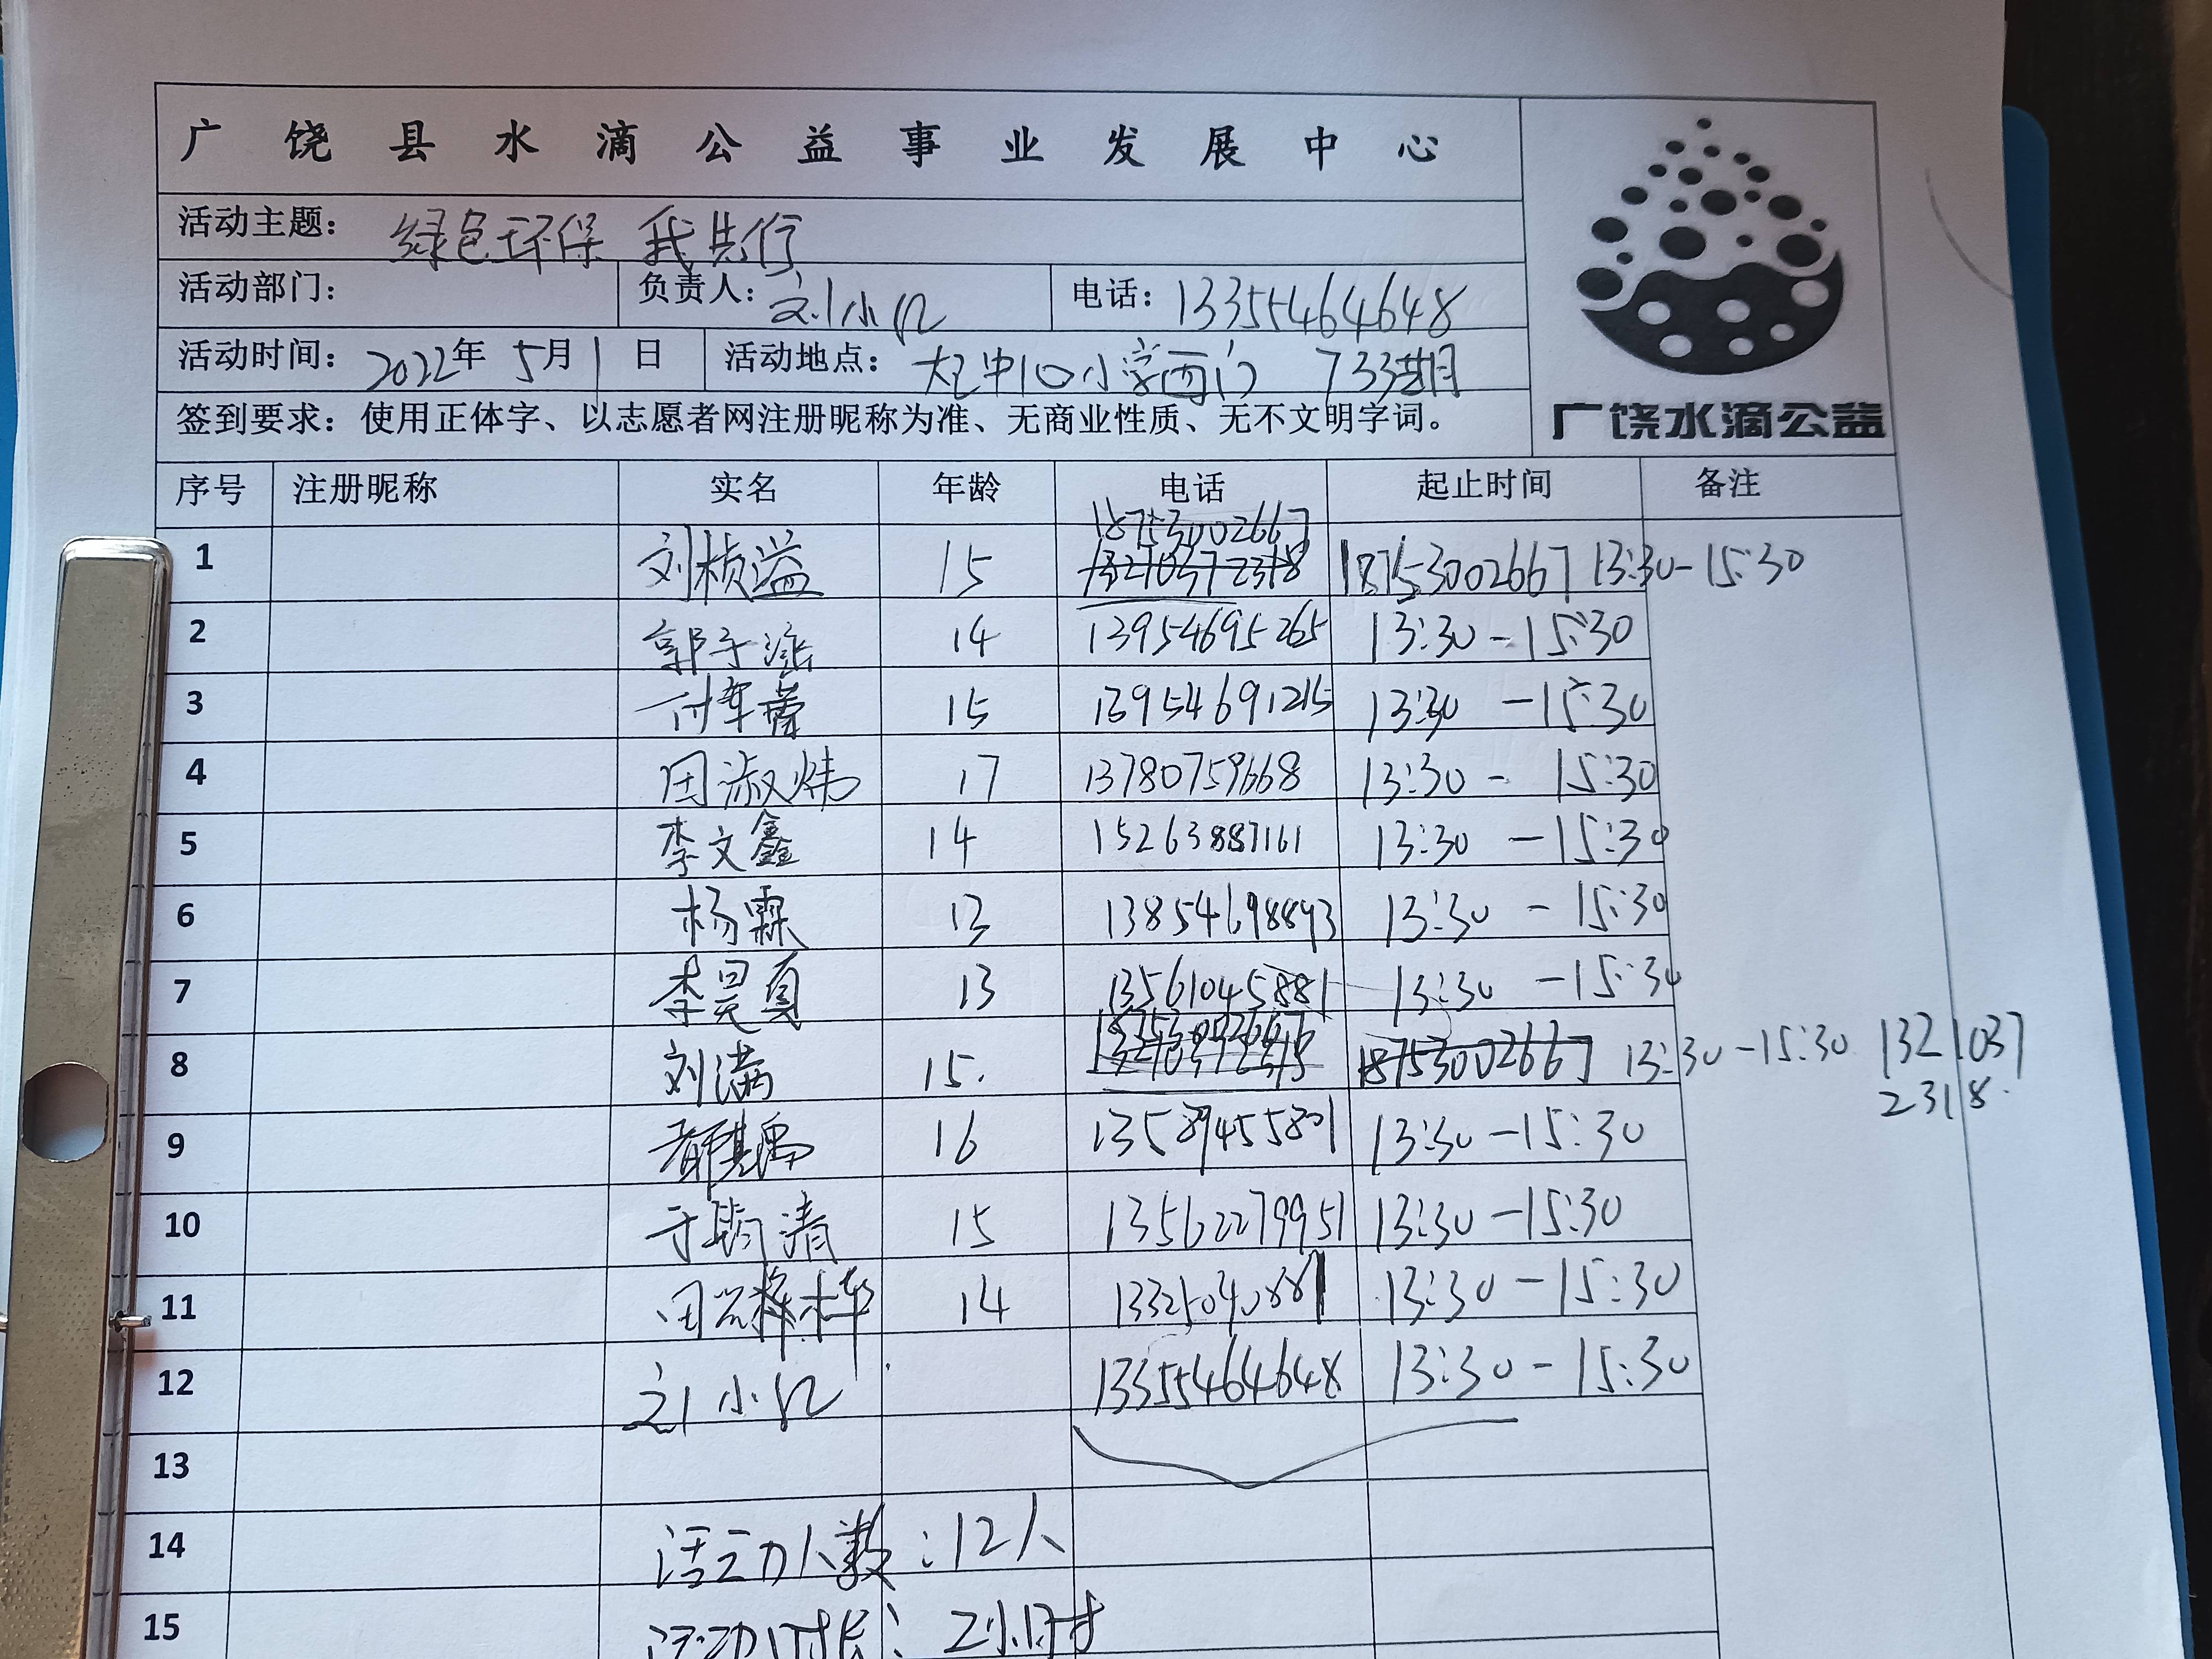 广饶县水滴公益事业发展中心
活动主题： 绿色环保 我先行
活动部门： 负责人：刘小红 电话：13355464648
活动时间：2022年 5月1日 活动地点： 小学西门 733期
签到要求：使用正体字、以志愿者网注册昵称为准、无商业性质、无不文明字词。
广饶水滴公益
序号 注册昵称 实名 年龄 电话 起止时间 备注
18753002667
1 刘桢溢 15 13210372318 18753002667 13:30-15:30
2 郭子涨 14 13954695265 13:30-15:30
3 15 13954691215 13:30-15:30
4 田淑炜 17 13780759668 13:30-15:30
5 李文鑫 14 15263887161 13:30-15:30
6 杨霖 13 13854698893 13:30-15:30
7 李昊真 13 13561045881 13:30-15:30
8 刘满 15. 18753002667 13:30-15:30 1321037
2318.
9 16 13589455801 13:30-15:30
10 清 15 13562279951 13:30-15:30
11 14 13325040881 13:30-15:30
12 刘小红 13355464648 13:30-15:30
13
14 活动人数：12人
15 活动时长：2小时